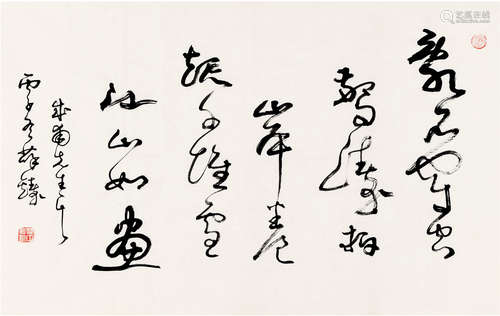 亂石穿空
驚濤拍
岸卷
起千堆雪
江山如畫
先生